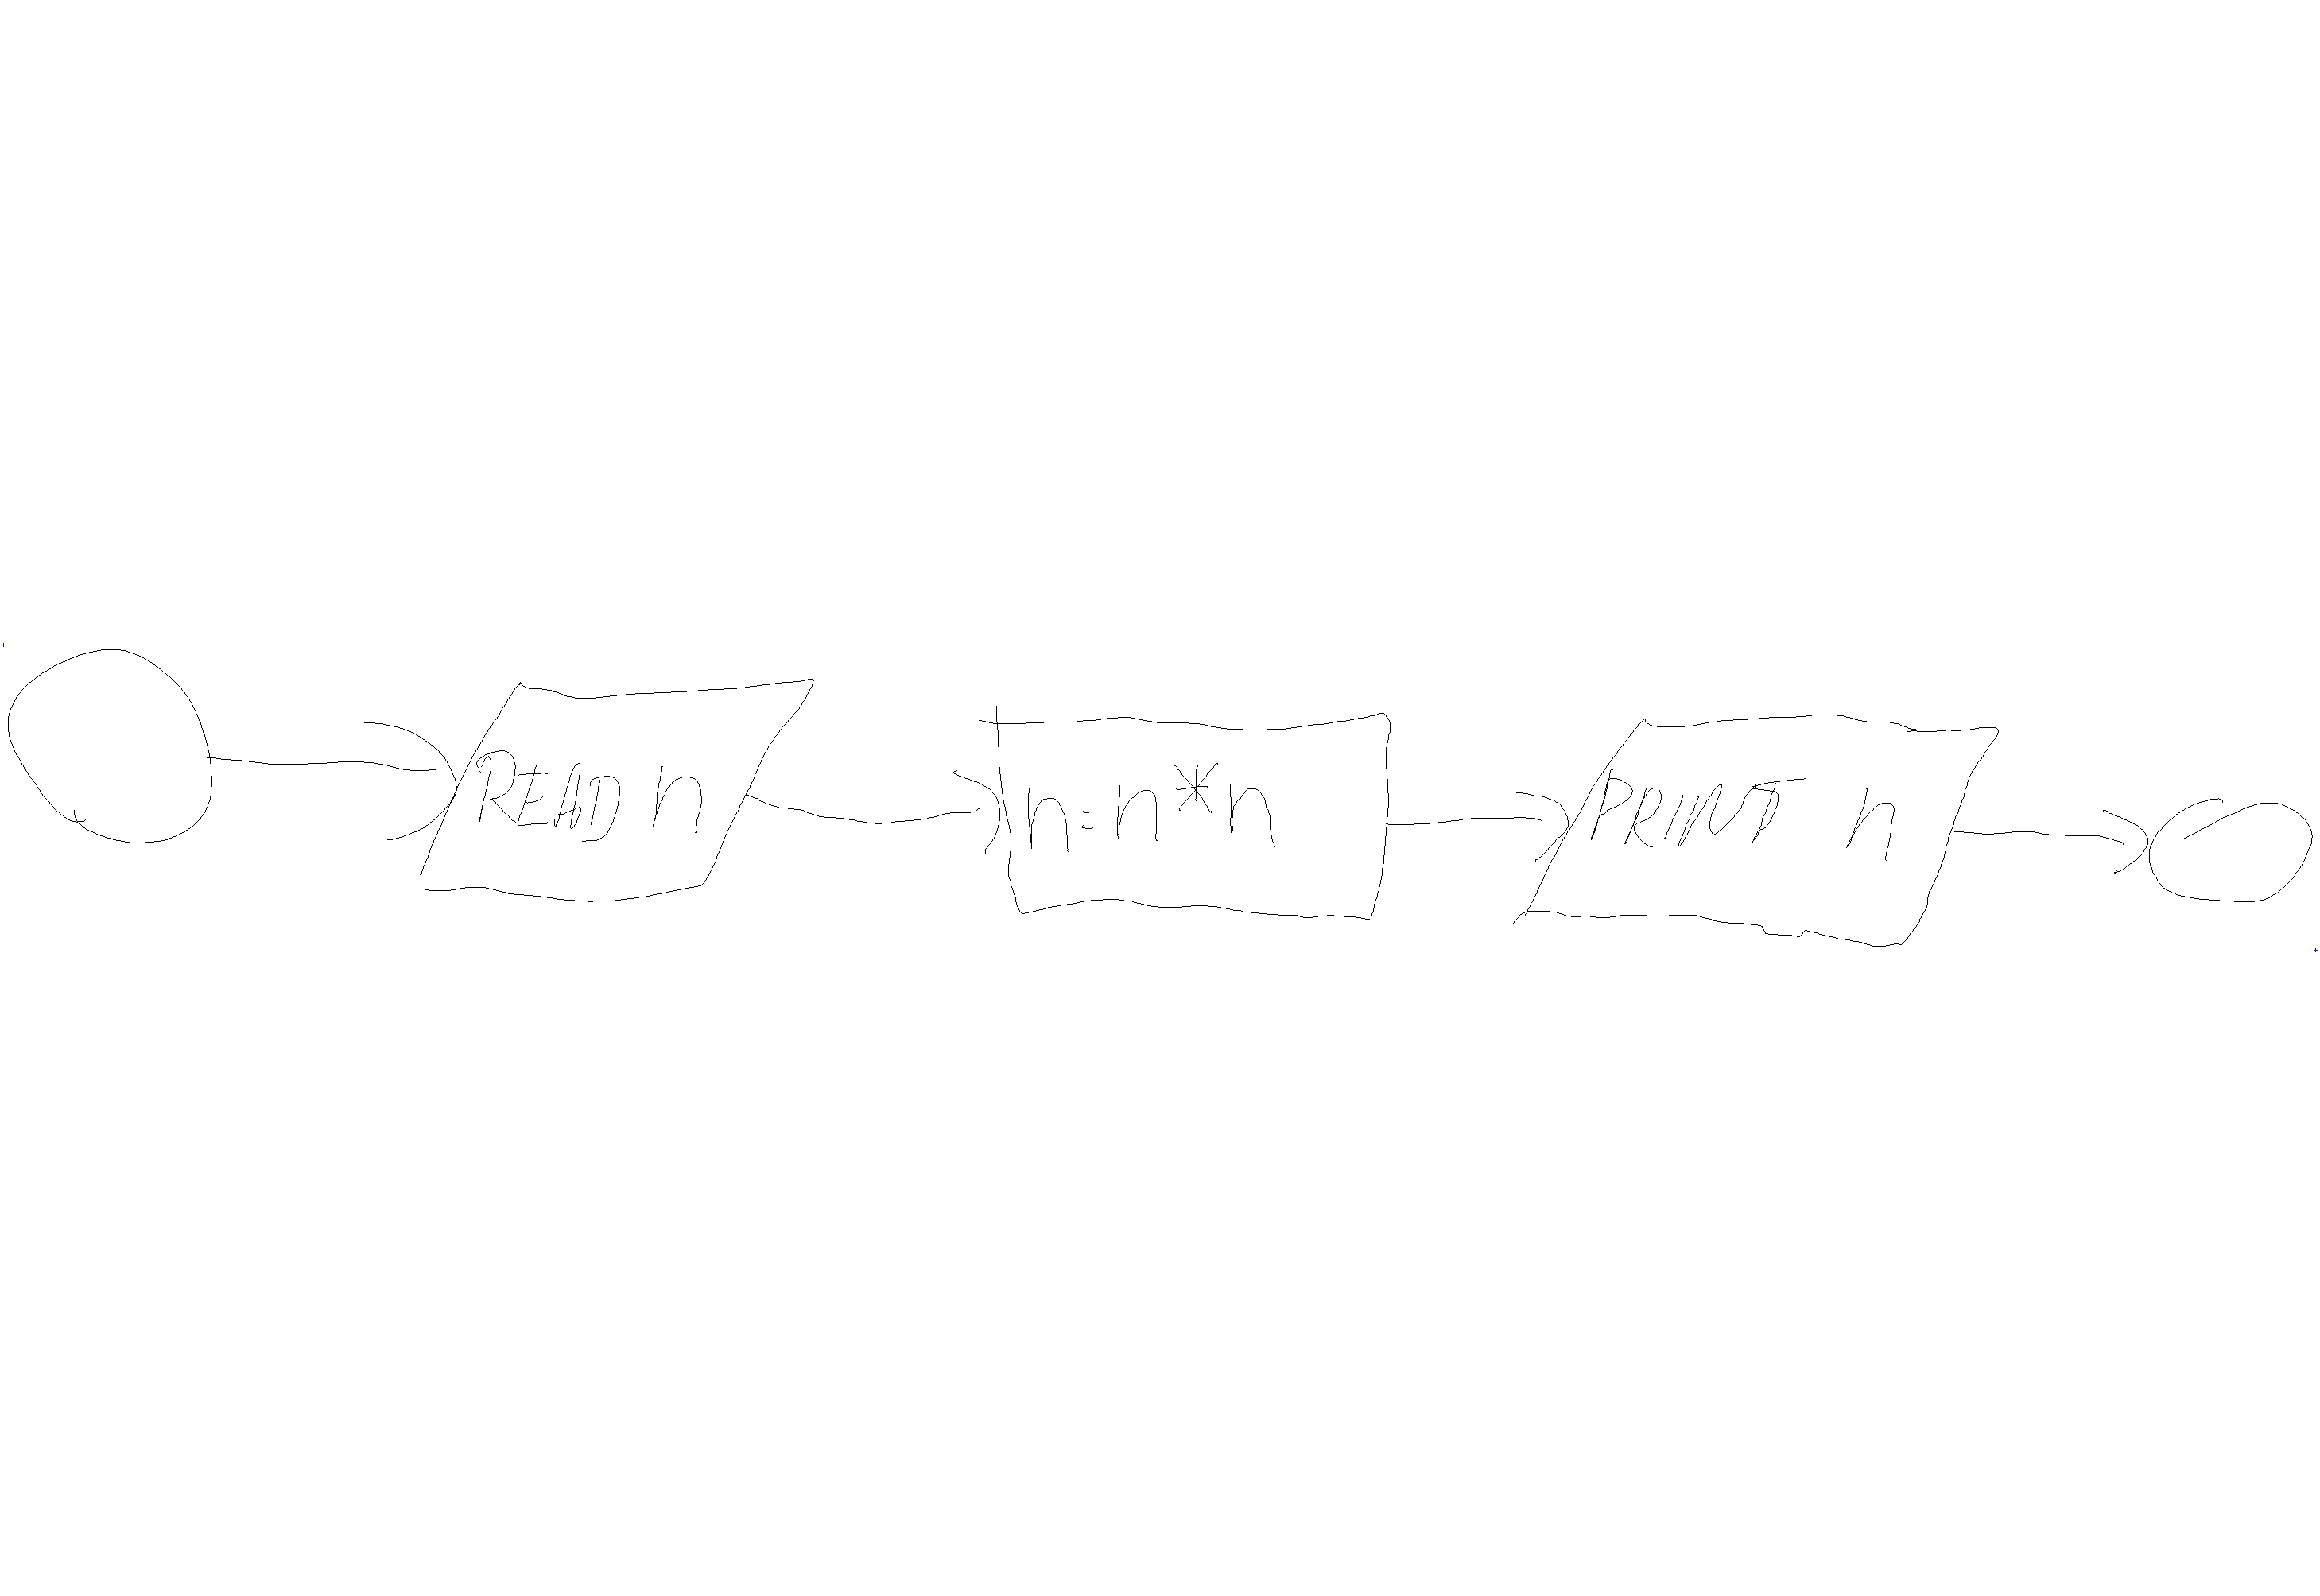 READ n
n=n*n
PRINT n